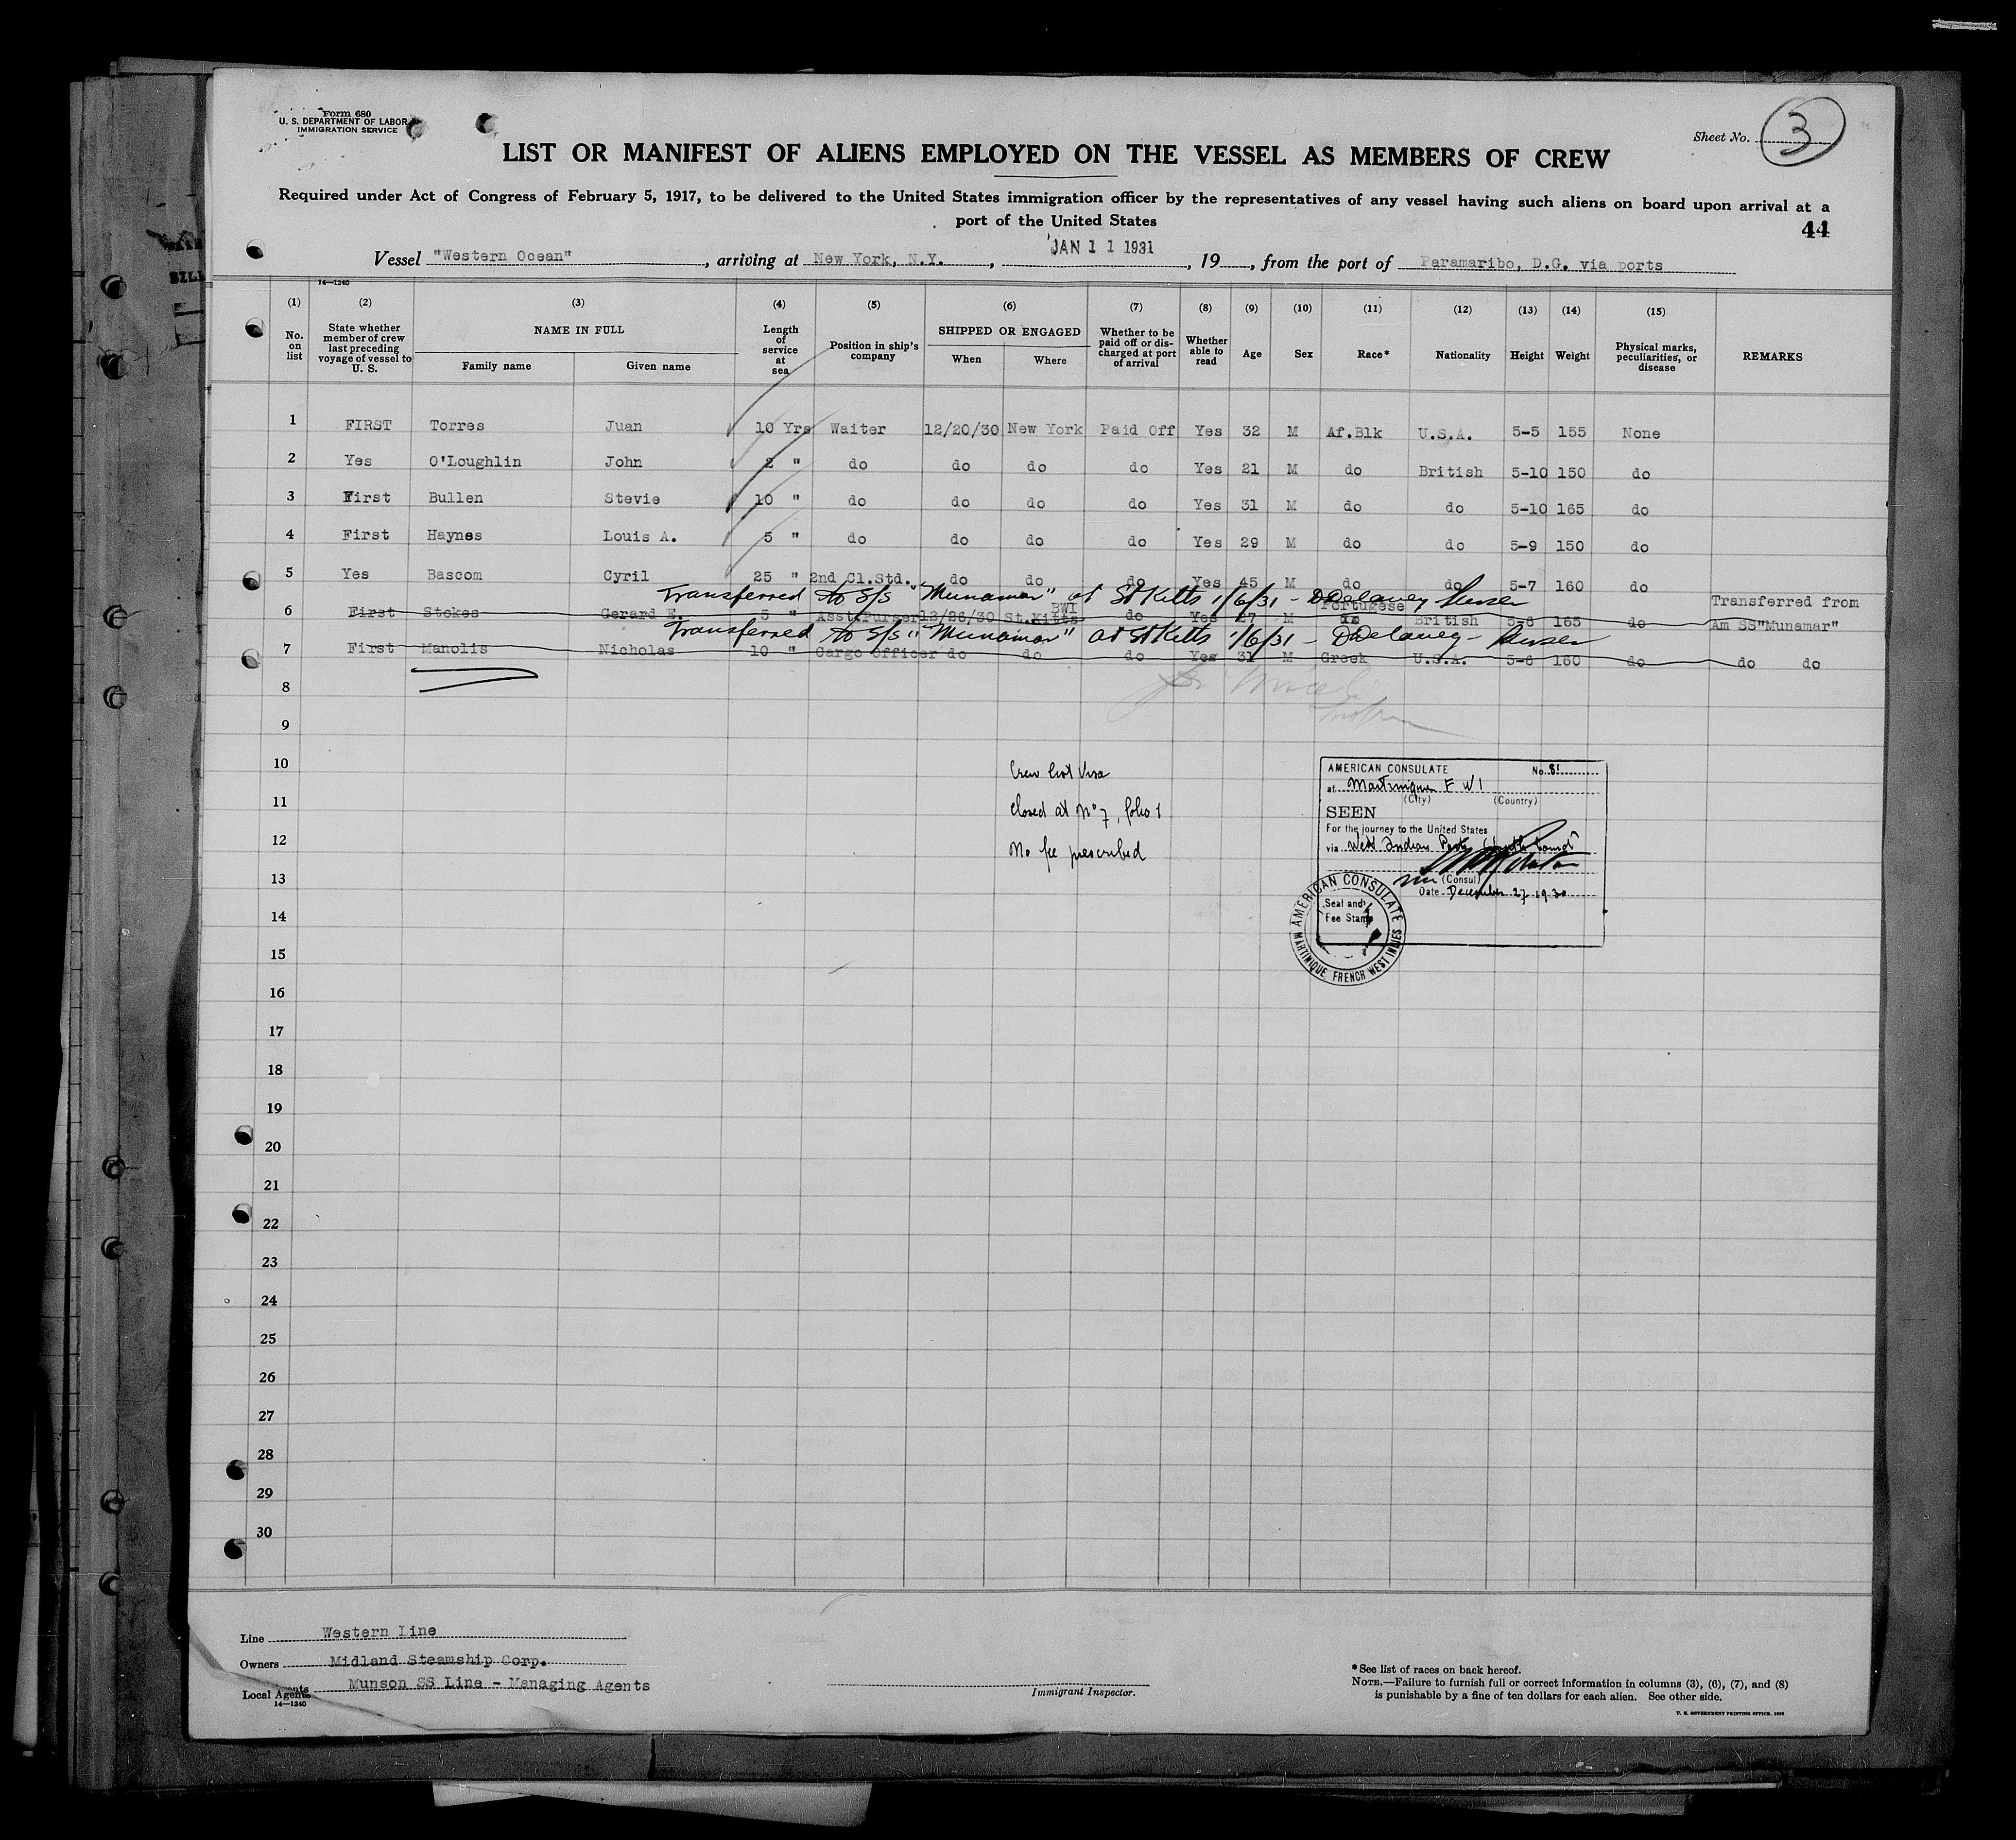 Form 680
U. S. DEPARTMENT OF LABOR
IMMIGRATION SERVICE
Sheet No. 3
LIST OR MANIFEST OF ALIENS EMPLOYED ON THE VESSEL AS MEMBERS OF CREW
Required under Act of Congress of February 5, 1917, to be delivered to the United States immigration officer by the representatives of any vessel having such aliens on board upon arrival at a
port of the United States
44
Vessel "Western Ocean", arriving at New York, N.Y., JAN 11 1931, 19, from the port of Paramaribo, D.G. via ports
14—1240
(1) (2) (3) (4) (5) (6) (7) (8) (9) (10) (11) (12) (13) (14) (15)
No. on list
State whether member of crew last preceding voyage of vessel to U. S.
NAME IN FULL
Family name
Given name
Length of service at sea
Position in ship's company
SHIPPED OR ENGAGED
When
Where
Whether to be paid off or discharged at port of arrival
Whether able to read
Age
Sex
Race*
Nationality
Height
Weight
Physical marks, peculiarities, or disease
REMARKS
1 FIRST Torres Juan 10 Yrs Waiter 12/20/30 New York Paid Off Yes 32 M Af.Blk U.S.A. 5-5 155 None
2 Yes O'Loughlin John 2 " do do do do Yes 21 M do British 5-10 150 do
3 First Bullen Stevie 10 " do do do do Yes 31 M do do 5-10 165 do
4 First Haynes Louis A. 5 " do do do do Yes 29 M do do 5-9 150 do
5 Yes Bascom Cyril 25 " 2nd Cl.Std. do do do Yes 45 M do do 5-7 160 do
Transferred to S/S "Munamar" at St Kitts 1/6/31 - D Delaney Purser
6 First Stokes Gerard E. 5 " Asst.Purser 12/26/30 St.Kitts BWI do Yes 27 M Portugese British 5-6 165 do Transferred from Am SS"Munamar"
Transferred to S/S "Munamar" at St Kitts 1/6/31 - D Delaney - Purser
7 First Manolis Nicholas 10 " Cargo Officer do do do Yes 31 M Greek U.S.A. 5-6 160 do do do
8
9
10
11
12
13
14
15
16
17
18
19
20
21
22
23
24
25
26
27
28
29
30
Crew list Visa
closed at No 7, folio 1
No fee prescribed
AMERICAN CONSULATE No. 81
at Martinique F W I
(City) (Country)
SEEN
For the journey to the United States
via West Indian Ports
(Consul)
Date December 27 1930
Seal and
Fee Stamp
AMERICAN CONSULATE
MARTINIQUE, FRENCH WEST INDIES
Line Western Line
Owners Midland Steamship Corp.
Local Agents Munson SS Line - Managing Agents
14—1240
Immigrant Inspector.
*See list of races on back hereof.
NOTE.—Failure to furnish full or correct information in columns (3), (6), (7), and (8)
is punishable by a fine of ten dollars for each alien. See other side.
U. S. GOVERNMENT PRINTING OFFICE.